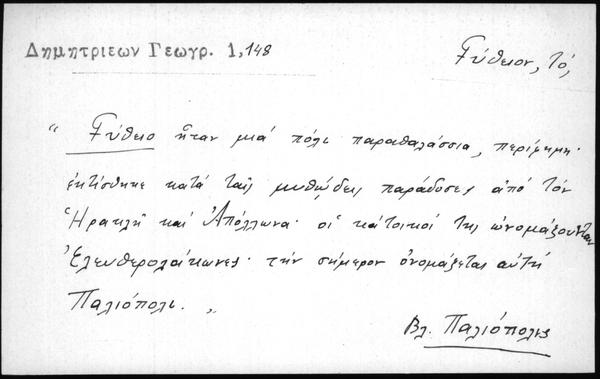 Δημητριεων Γεωγρ. 1,148
Γύθειον, τό,
" Γύθειο ἦταν μιά πόλι παραθαλάσσια, περίφημη·
ἐκτίσθηκε κατά ταῖς μυθώδεις παράδοσες ἀπό τόν
Ἡρακλῆ καί Ἀπόλλωνα· οἱ κάτοικοί της ὠνομάζουνταν
Ἐλευθερολάκωνες· τήν σήμερον ὀνομάζεται αὐτή
Παλιόπολι. "
Βλ. Παλιόπολις